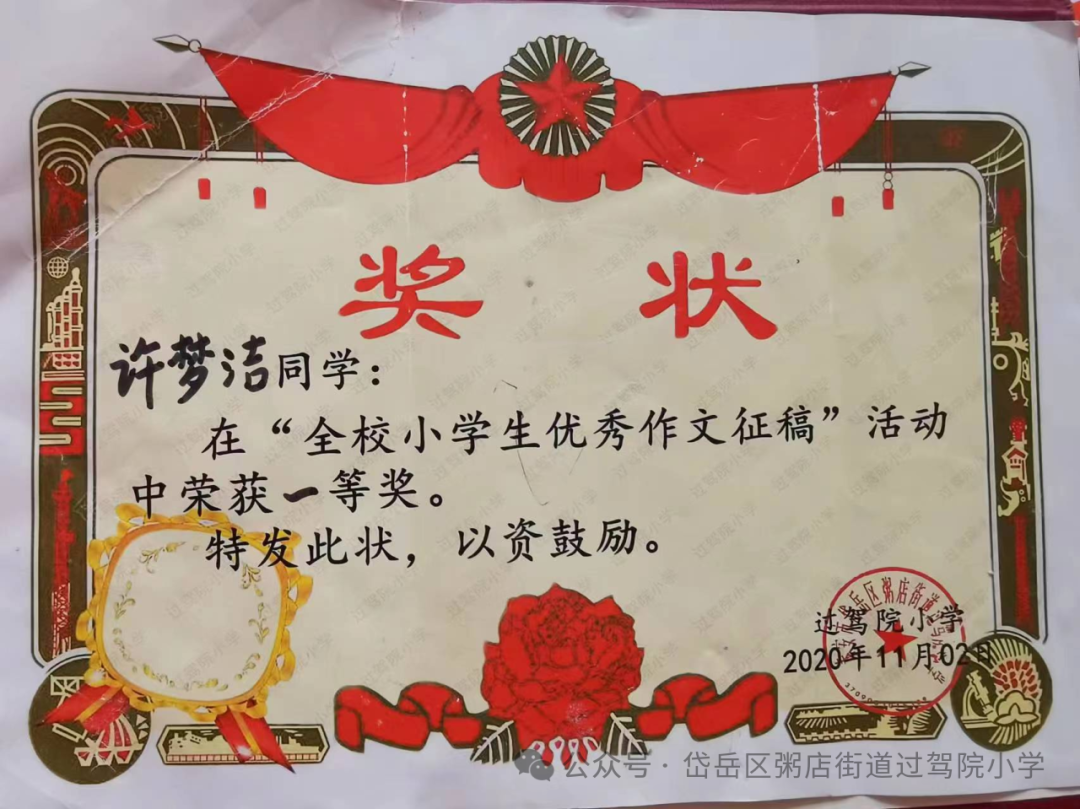 奖状
许梦洁同学：
在“全校小学生优秀作文征稿”活动
中荣获一等奖。
特发此状，以资鼓励。
过驾院小学
2020年11月02日
公众号·岱岳区粥店街道过驾院小学